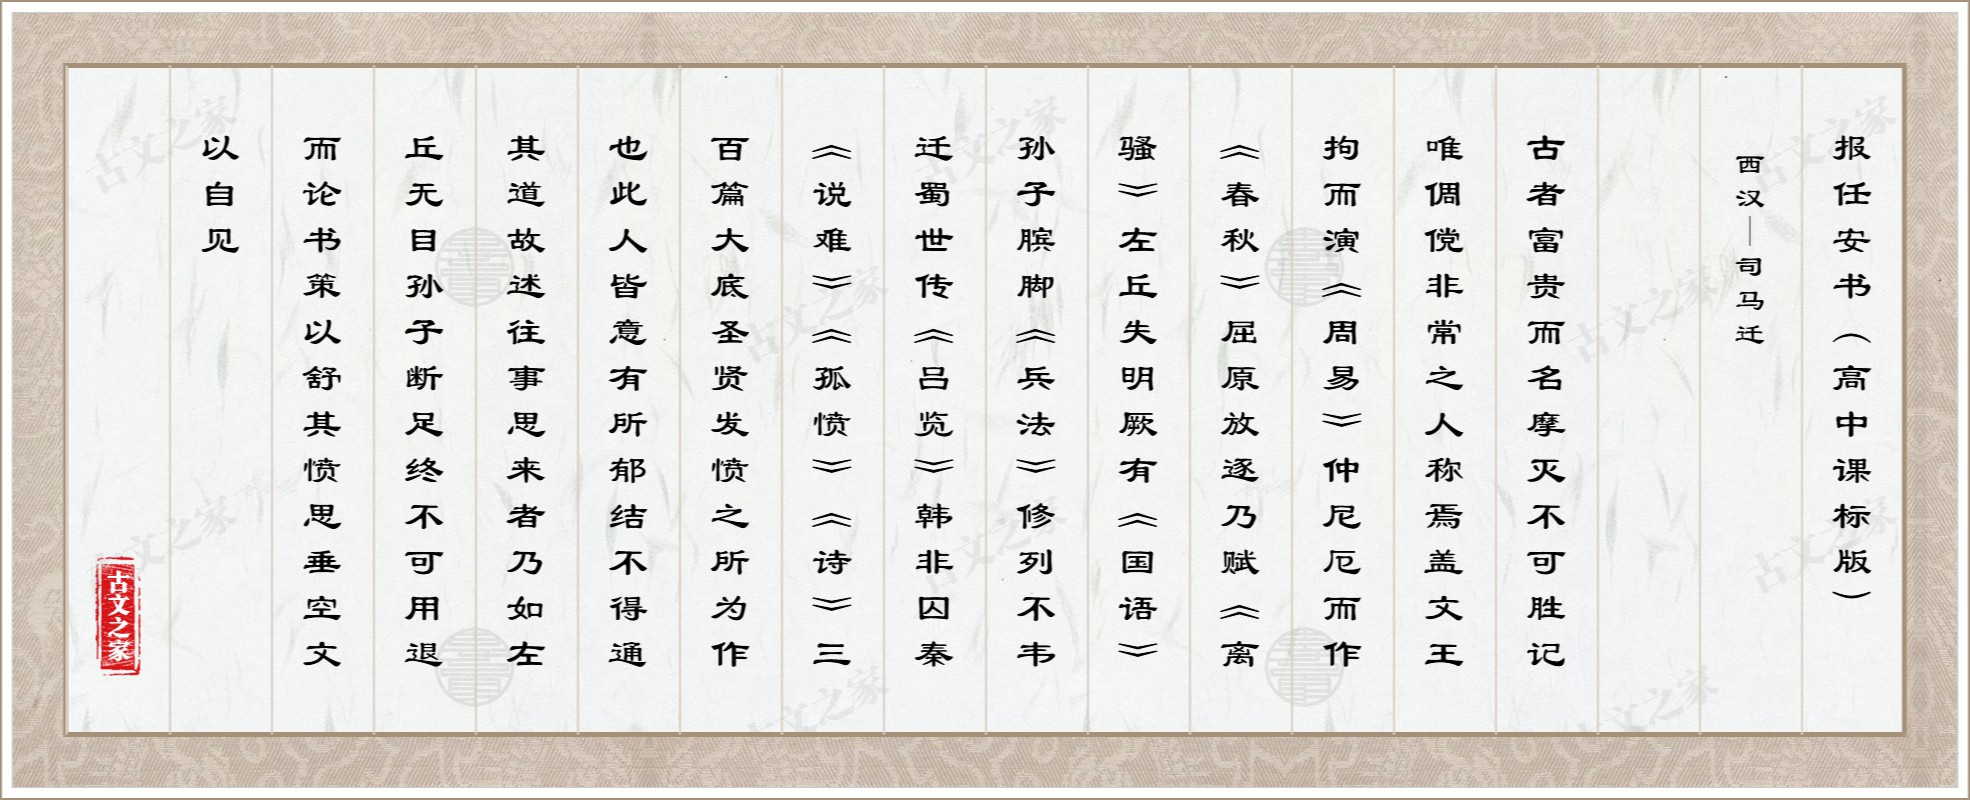 报任安书（高中课标版）
西汉—司马迁
古者富贵而名摩灭不可胜记
唯倜傥非常之人称焉盖文王
拘而演《周易》仲尼厄而作
《春秋》屈原放逐乃赋《离
骚》左丘失明厥有《国语》
孙子膑脚《兵法》修列不韦
迁蜀世传《吕览》韩非囚秦
《说难》《孤愤》《诗》三
百篇大底圣贤发愤之所为作
也此人皆意有所郁结不得通
其道故述往事思来者乃如左
丘无目孙子断足终不可用退
而论书策以舒其愤思垂空文
以自见
古文之家